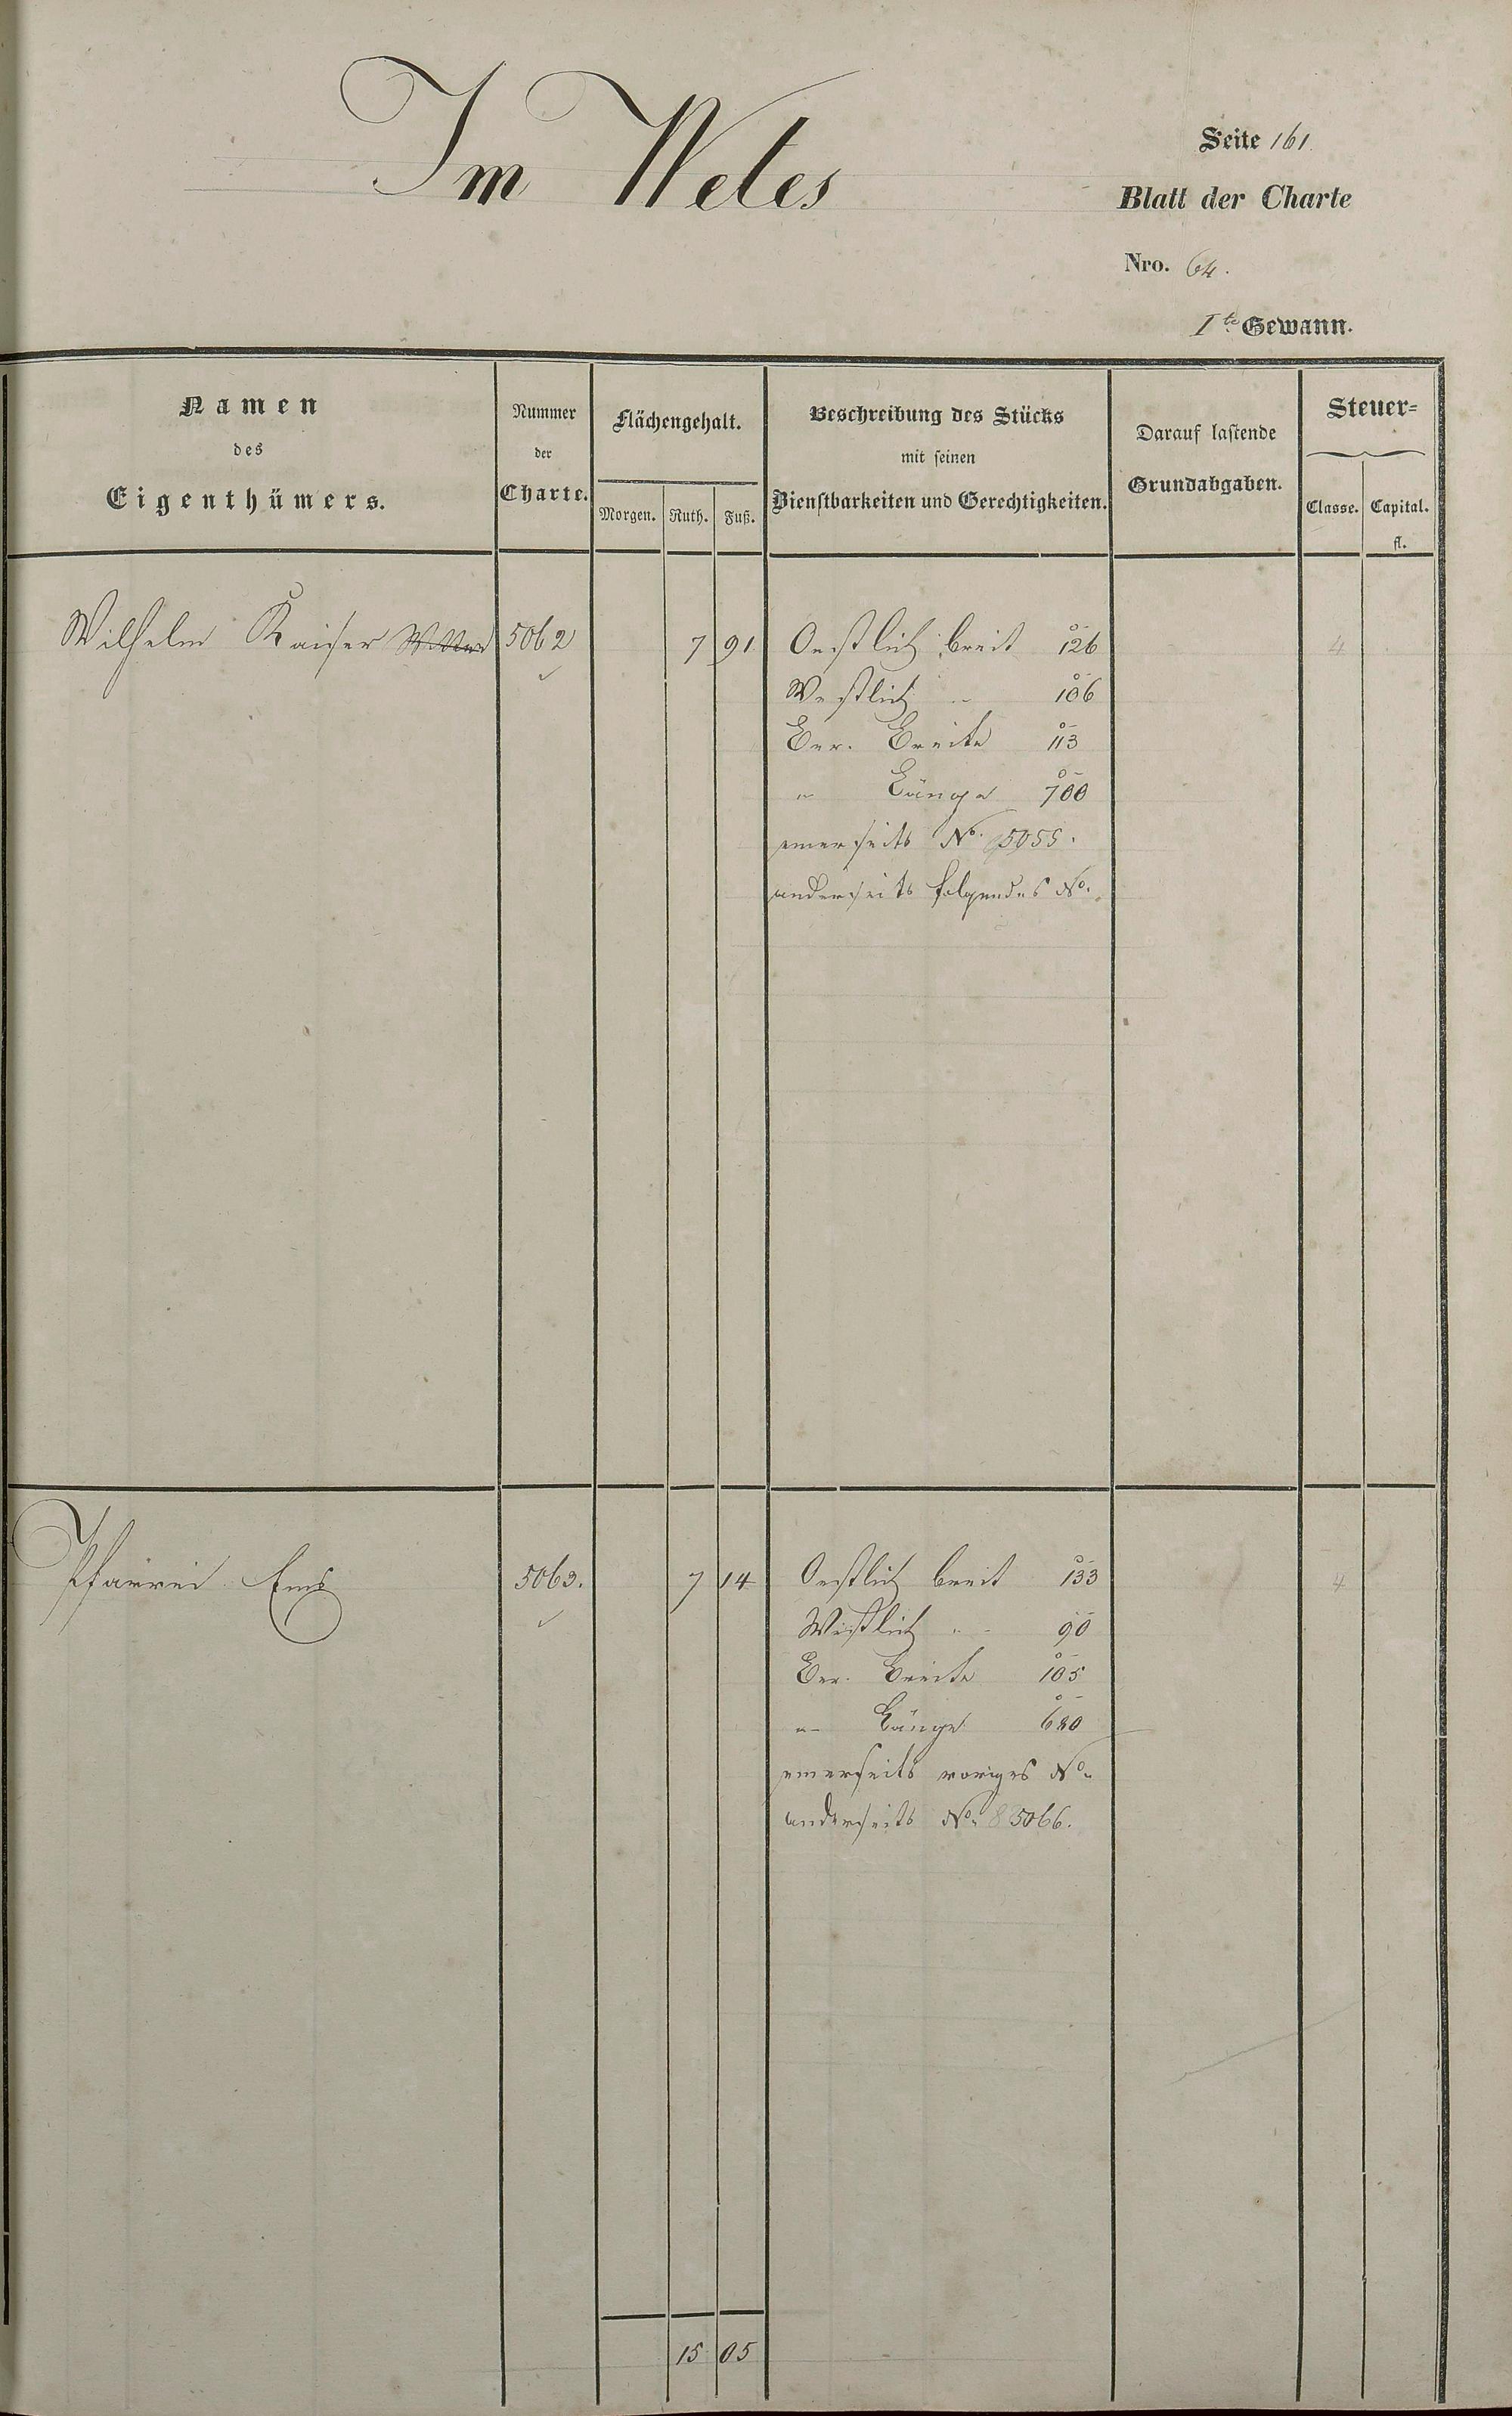 Im Weles
Seite 161
Blatt der Charte
Nro. 64.
I te Gewann.
Namen
des
Eigenthümers.
Nummer
der
Charte.
Flächengehalt.
Morgen. Ruth. Fuß.
Beschreibung des Stücks
mit seinen
Dienstbarkeiten und Gerechtigkeiten.
Darauf lastende
Grundabgaben.
Steuer=
Classe. Capital.
fl.
Wilhelm Kaiser 5062 7 91 Oestlich breit 126 4
Westlich " 106
Ver. Breite 113
" Länge 700
einerseits No. 5055.
anderseits folgendes No.
Pfarrei Ems 5063. 7 14 Oestlich breit 133 4
Westlich " 90
Ver. Breite 105
" Länge 680
einerseits voriges No.
anderseits No. 5066.
15 05